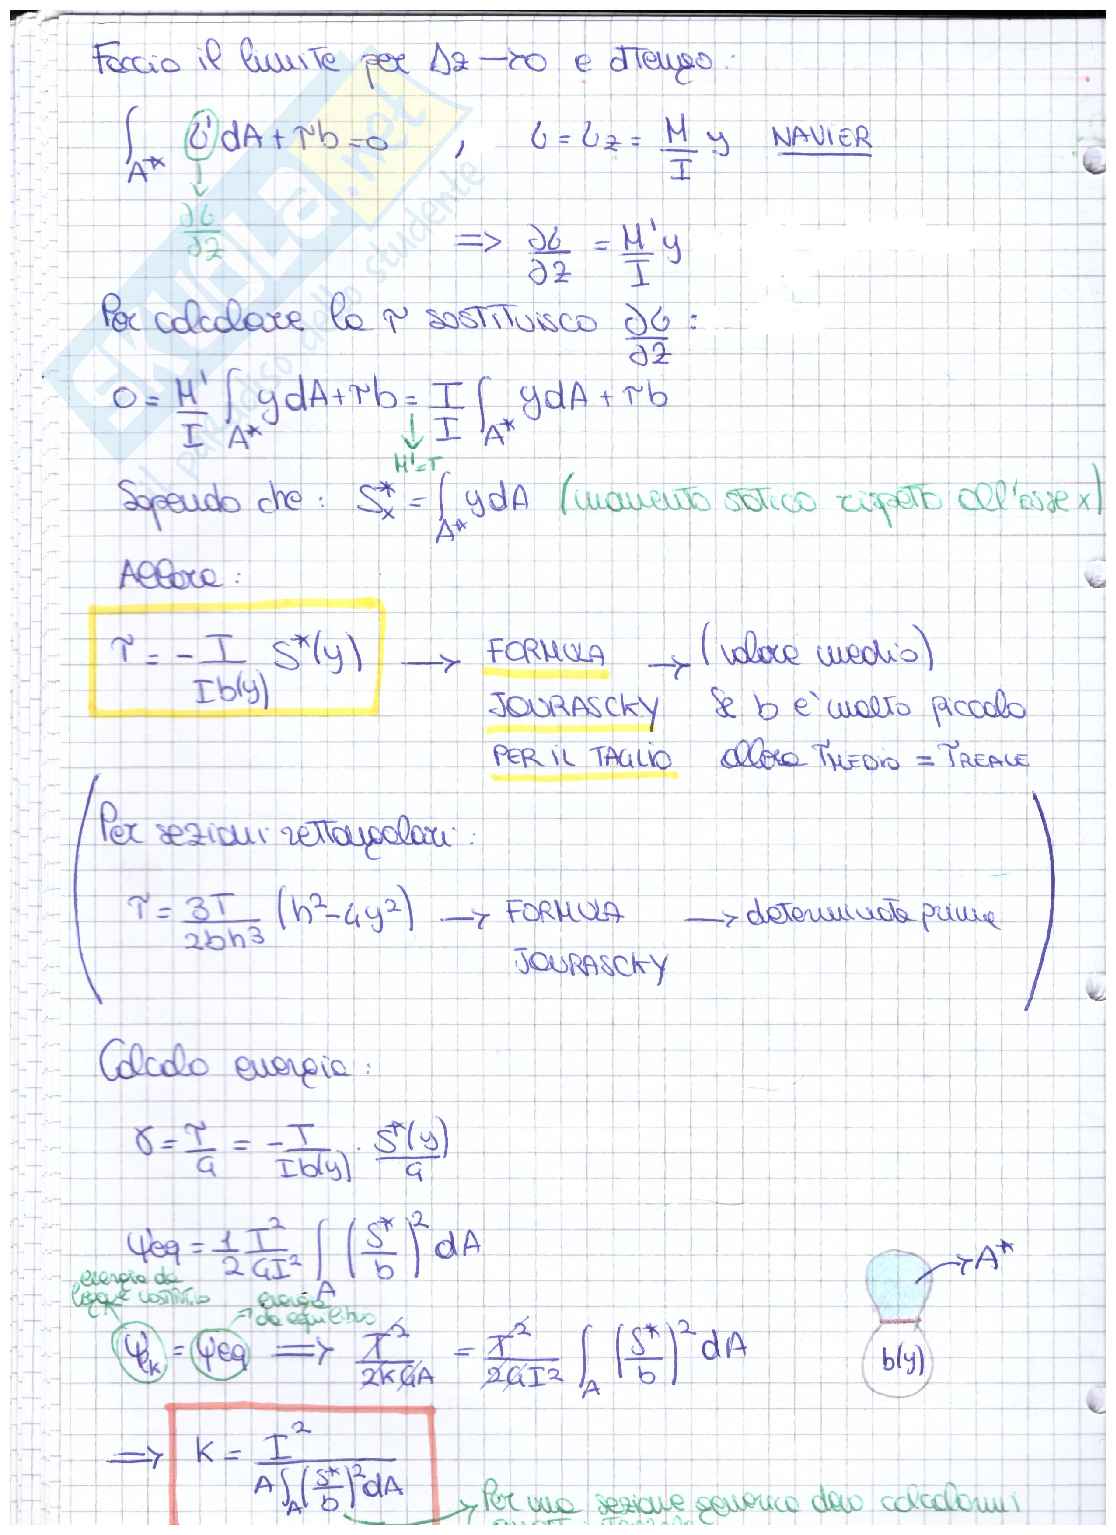 Faccio il limite per Δz→0 e ottengo:
∫_A* σ' dA + τb = 0 , σ = σz = M/I y NAVIER
∂σ/∂z
=> ∂σ/∂z = M'/I y
Per calcolare la τ sostituisco ∂σ/∂z :
0 = M'/I ∫_A* y dA + τb = T/I ∫_A* y dA + τb
M'=T
Sapendo che: S*x = ∫_A* y dA (momento statico rispetto all'asse x)
Allora:
τ = - T/(I b(y)) S*(y) → FORMULA → (valore medio)
JOURASCKY se b è molto piccolo
PER IL TAGLIO allora τMEDIO = τREALE
Per sezioni rettangolari:
τ = 3T/(2bh³) (h²-4y²) → FORMULA → determinata prima
JOURASCKY
Calcolo energia:
γ = τ/G = - T/(I b(y)) · S*(y)/G
ψeq = 1/2 T²/(GI²) ∫_A (S*/b)² dA
energia da
legame costitutivo
energia
da equilibrio
ψk = ψeq => T²/(2kGA) = T²/(2GI²) ∫_A (S*/b)² dA
A*
b(y)
=> k = I²/(A ∫_A (S*/b)² dA)
Per una sezione generica devo calcolarmi
SKUOLA.net
il paradiso dello studente